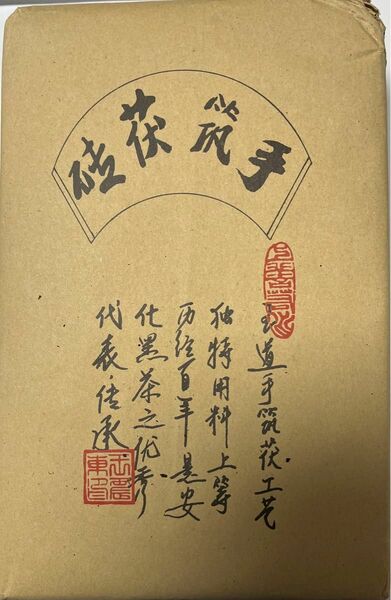 手筑茯砖
上善若水
道手筑茯工艺
独特用料上等
历经百年是安
化黑茶之优秀
代表传承